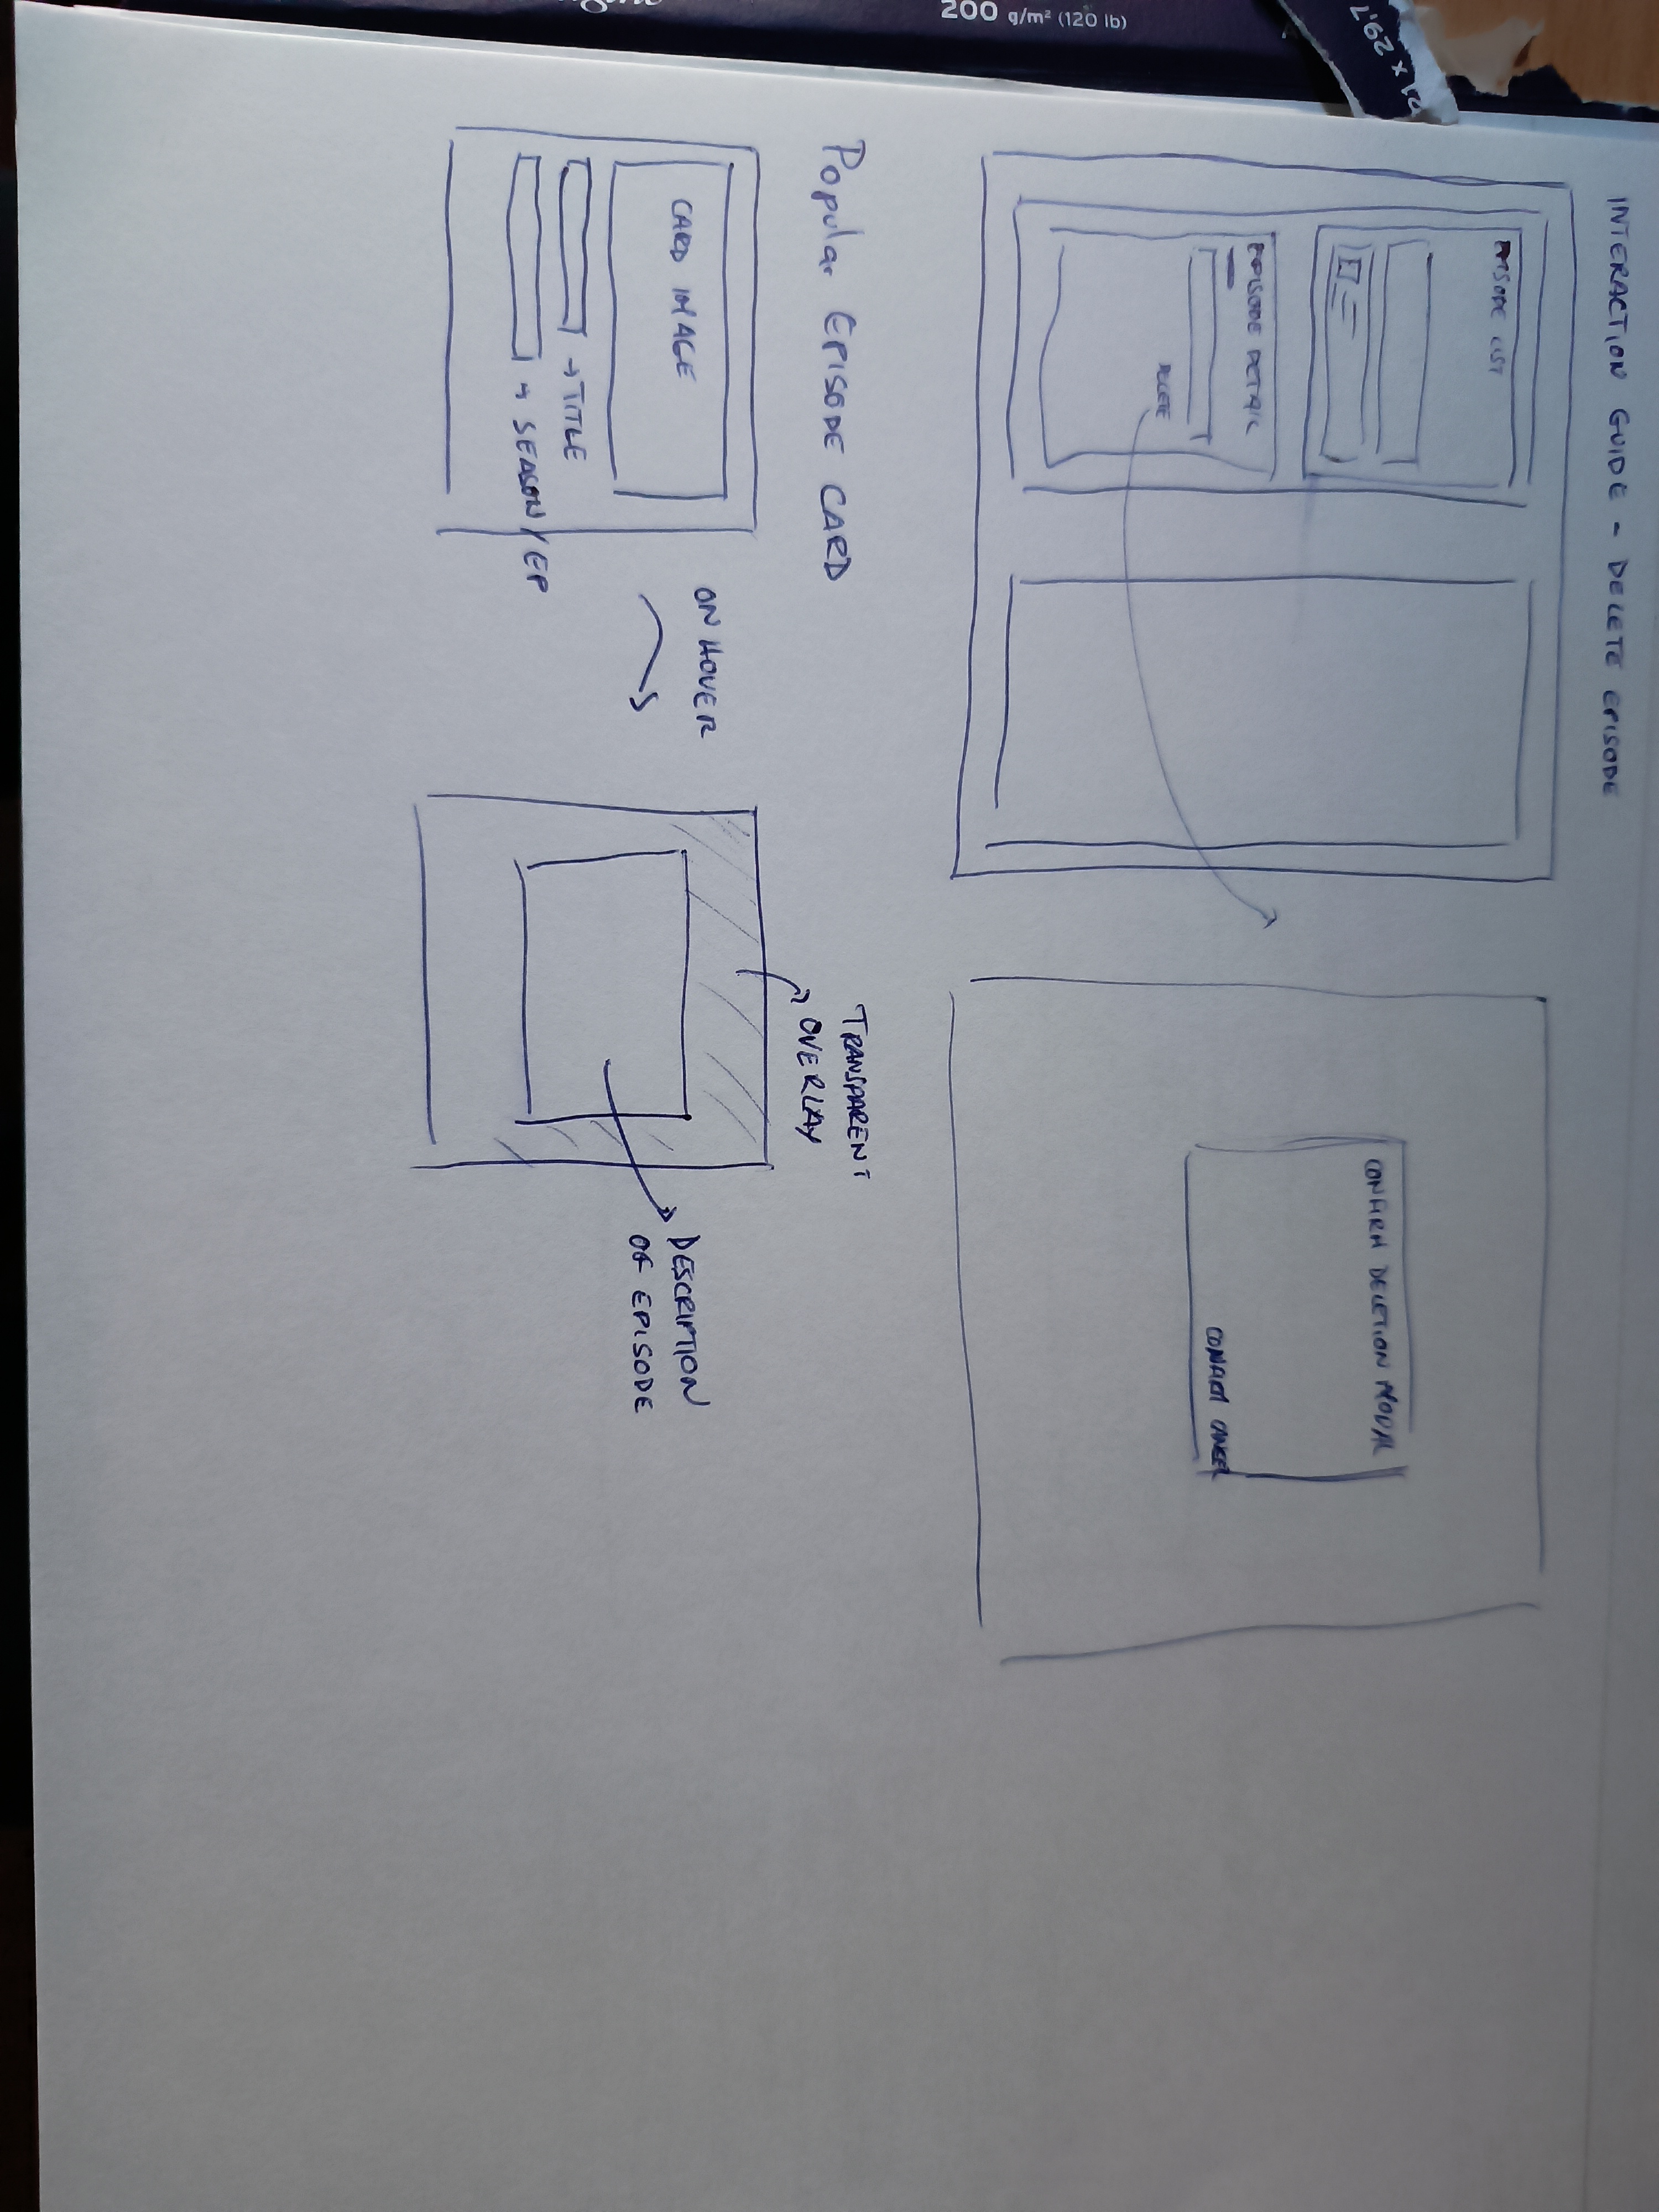 200 g/m² (120 lb)
INTERACTION GUIDE - DELETE EPISODE
EPISODE LIST
EPISODE DETAIL
DELETE
CONFIRM DELETION MODAL
CONFIRM CANCEL
Popular EPISODE CARD
CARD IMAGE
→ TITLE
→ SEASON/EP
ON HOVER
TRANSPARENT
OVERLAY
DESCRIPTION
OF EPISODE